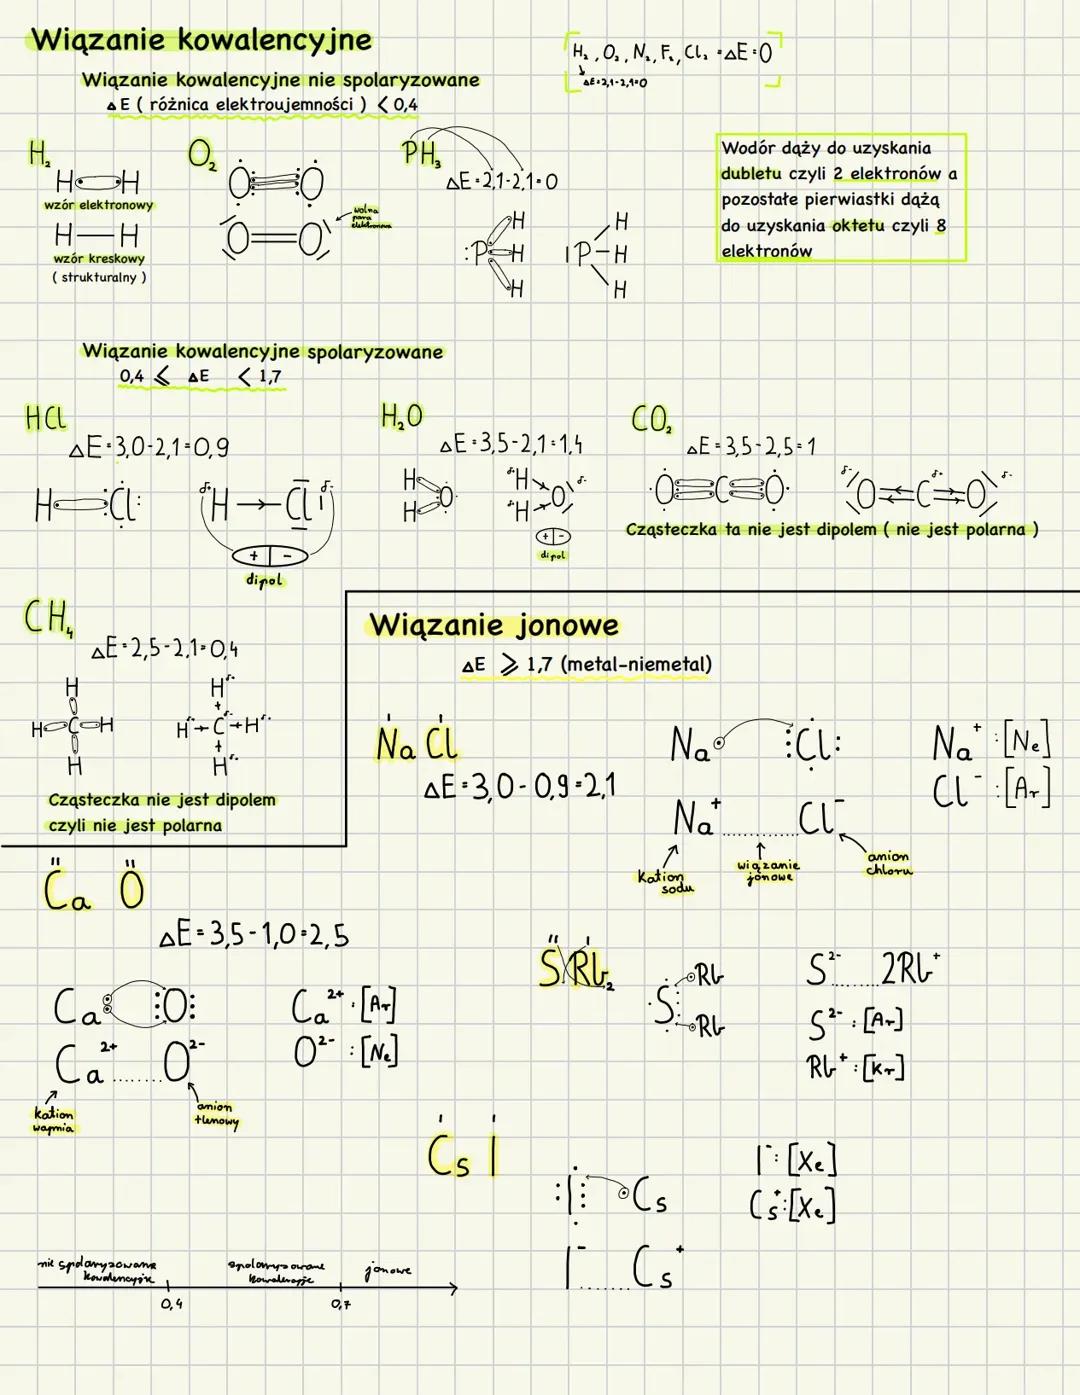 Wiązanie kowalencyjne
H₂, O₂, N₂, F₂, Cl₂ = ΔE=0
ΔE=2,1-2,1=0
Wiązanie kowalencyjne nie spolaryzowane
ΔE ( różnica elektroujemności ) < 0,4
H₂
H H
wzór elektronowy
H — H
wzór kreskowy
( strukturalny )
O₂
O O
O=O
wolna
para
elektronowa
PH₃
ΔE=2,1-2,1=0
:P H H H
|P H H H
Wodór dąży do uzyskania
dubletu czyli 2 elektronów a
pozostałe pierwiastki dążą
do uzyskania oktetu czyli 8
elektronów
Wiązanie kowalencyjne spolaryzowane
0,4 ⩽ ΔE < 1,7
HCl
ΔE=3,0-2,1=0,9
H Cl:
δ+ H → Cl δ-
+ -
dipol
H₂O
ΔE=3,5-2,1=1,4
H H O
δ+ H δ+ H O δ-
+ -
dipol
CO₂
ΔE=3,5-2,5=1
O C O
δ- O C δ+ O δ-
Cząsteczka ta nie jest dipolem ( nie jest polarna )
CH₄
ΔE=2,5-2,1=0,4
H
H C H
H
H δ+
H δ+ C δ- H δ+
H δ+
Cząsteczka nie jest dipolem
czyli nie jest polarna
Wiązanie jonowe
ΔE ⩾ 1,7 (metal-niemetal)
Na Cl
ΔE=3,0-0,9=2,1
Na :Cl:
Na⁺ ......... Cl⁻
kation
sodu
wiązanie
jonowe
anion
chloru
Na⁺ : [Ne]
Cl⁻ : [Ar]
Ca O
ΔE=3,5-1,0=2,5
Ca :O:
Ca²⁺ ....... O²⁻
kation
wapnia
anion
tlenowy
Ca²⁺ : [Ar]
O²⁻ : [Ne]
S Rb₂
S Rb Rb
S²⁻ ...... 2Rb⁺
S²⁻ : [Ar]
Rb⁺ : [Kr]
Cs I
:I: Cs
I⁻ ....... Cs⁺
I⁻ : [Xe]
Cs⁺ : [Xe]
nie spolaryzowane
kowalencyjne
spolaryzowane
kowalencyjne
jonowe
0,4
0,7